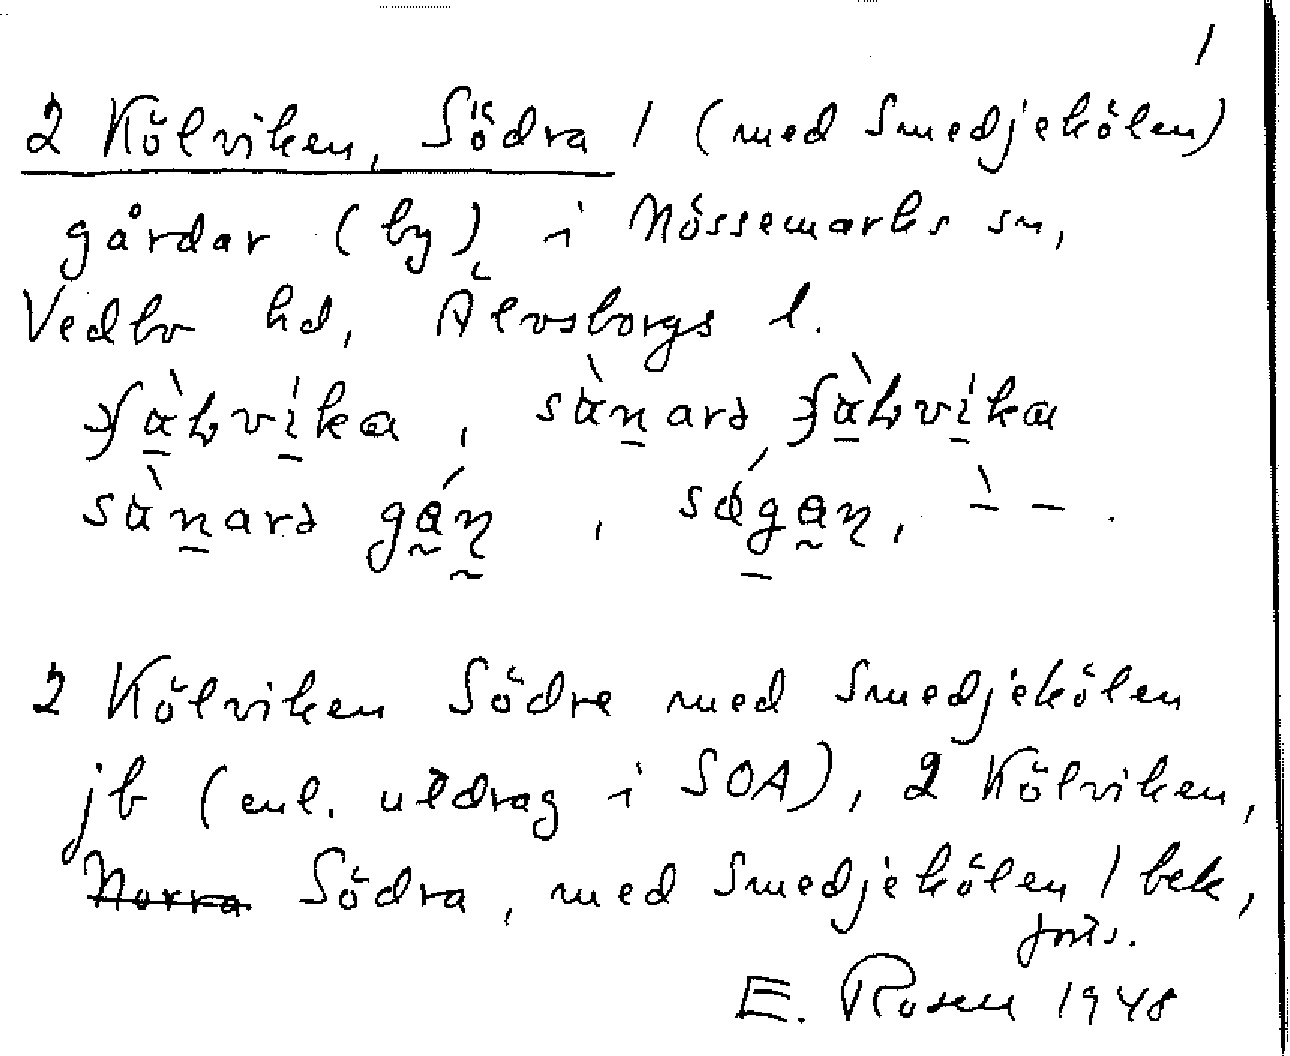 1
2 Kölviken, Södra 1 (med Smedjekölen)
gårdar (by) i Nössemarks sn,
Vedbo hd, Älvsborgs l.
2 Kölviken Södre med Smedjekölen
jb (enl. utdrag i SOA), 2 Kölviken,
Norra Södra, med Smedjekölen 1 bek,
forts.
E. Rosell 1948